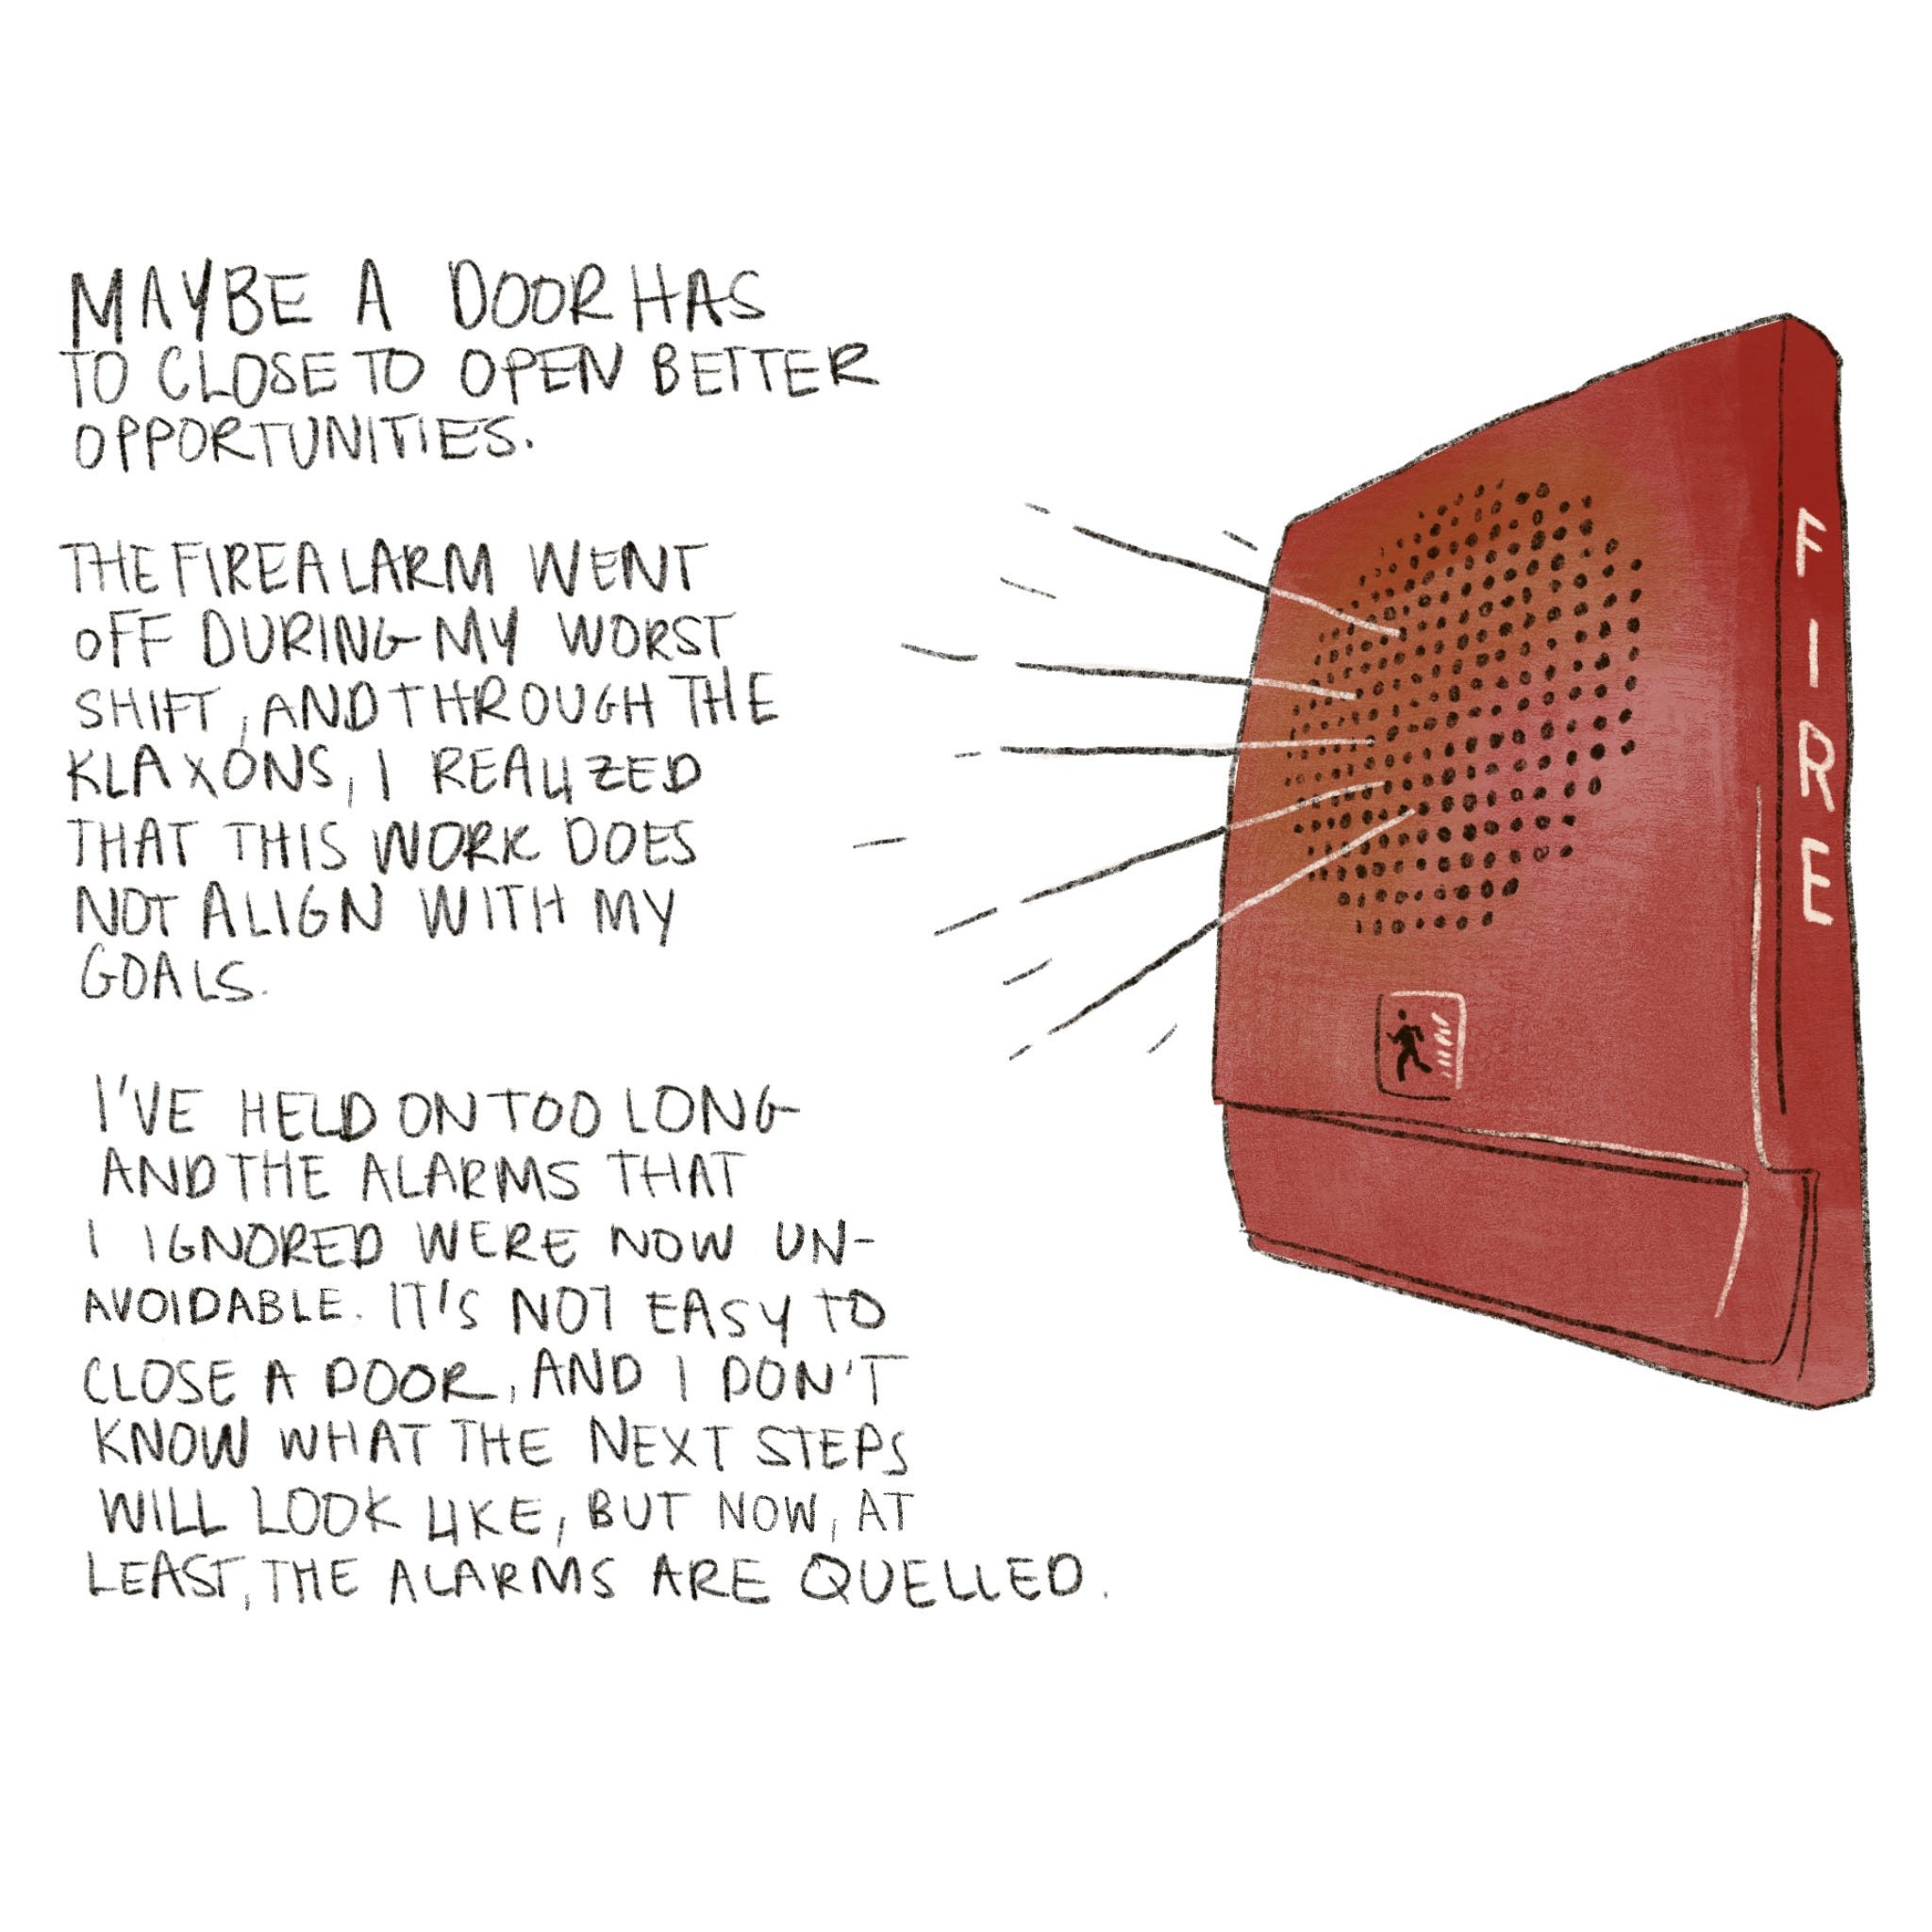 MAYBE A DOOR HAS
TO CLOSE TO OPEN BETTER
OPPORTUNITIES.
THE FIRE ALARM WENT
OFF DURING MY WORST
SHIFT, AND THROUGH THE
KLAXONS, I REALIZED
THAT THIS WORK DOES
NOT ALIGN WITH MY
GOALS.
I'VE HELD ON TOO LONG
AND THE ALARMS THAT
I IGNORED WERE NOW UN-
AVOIDABLE. IT'S NOT EASY TO
CLOSE A DOOR, AND I DON'T
KNOW WHAT THE NEXT STEPS
WILL LOOK LIKE, BUT NOW, AT
LEAST, THE ALARMS ARE QUELLED.
FIRE